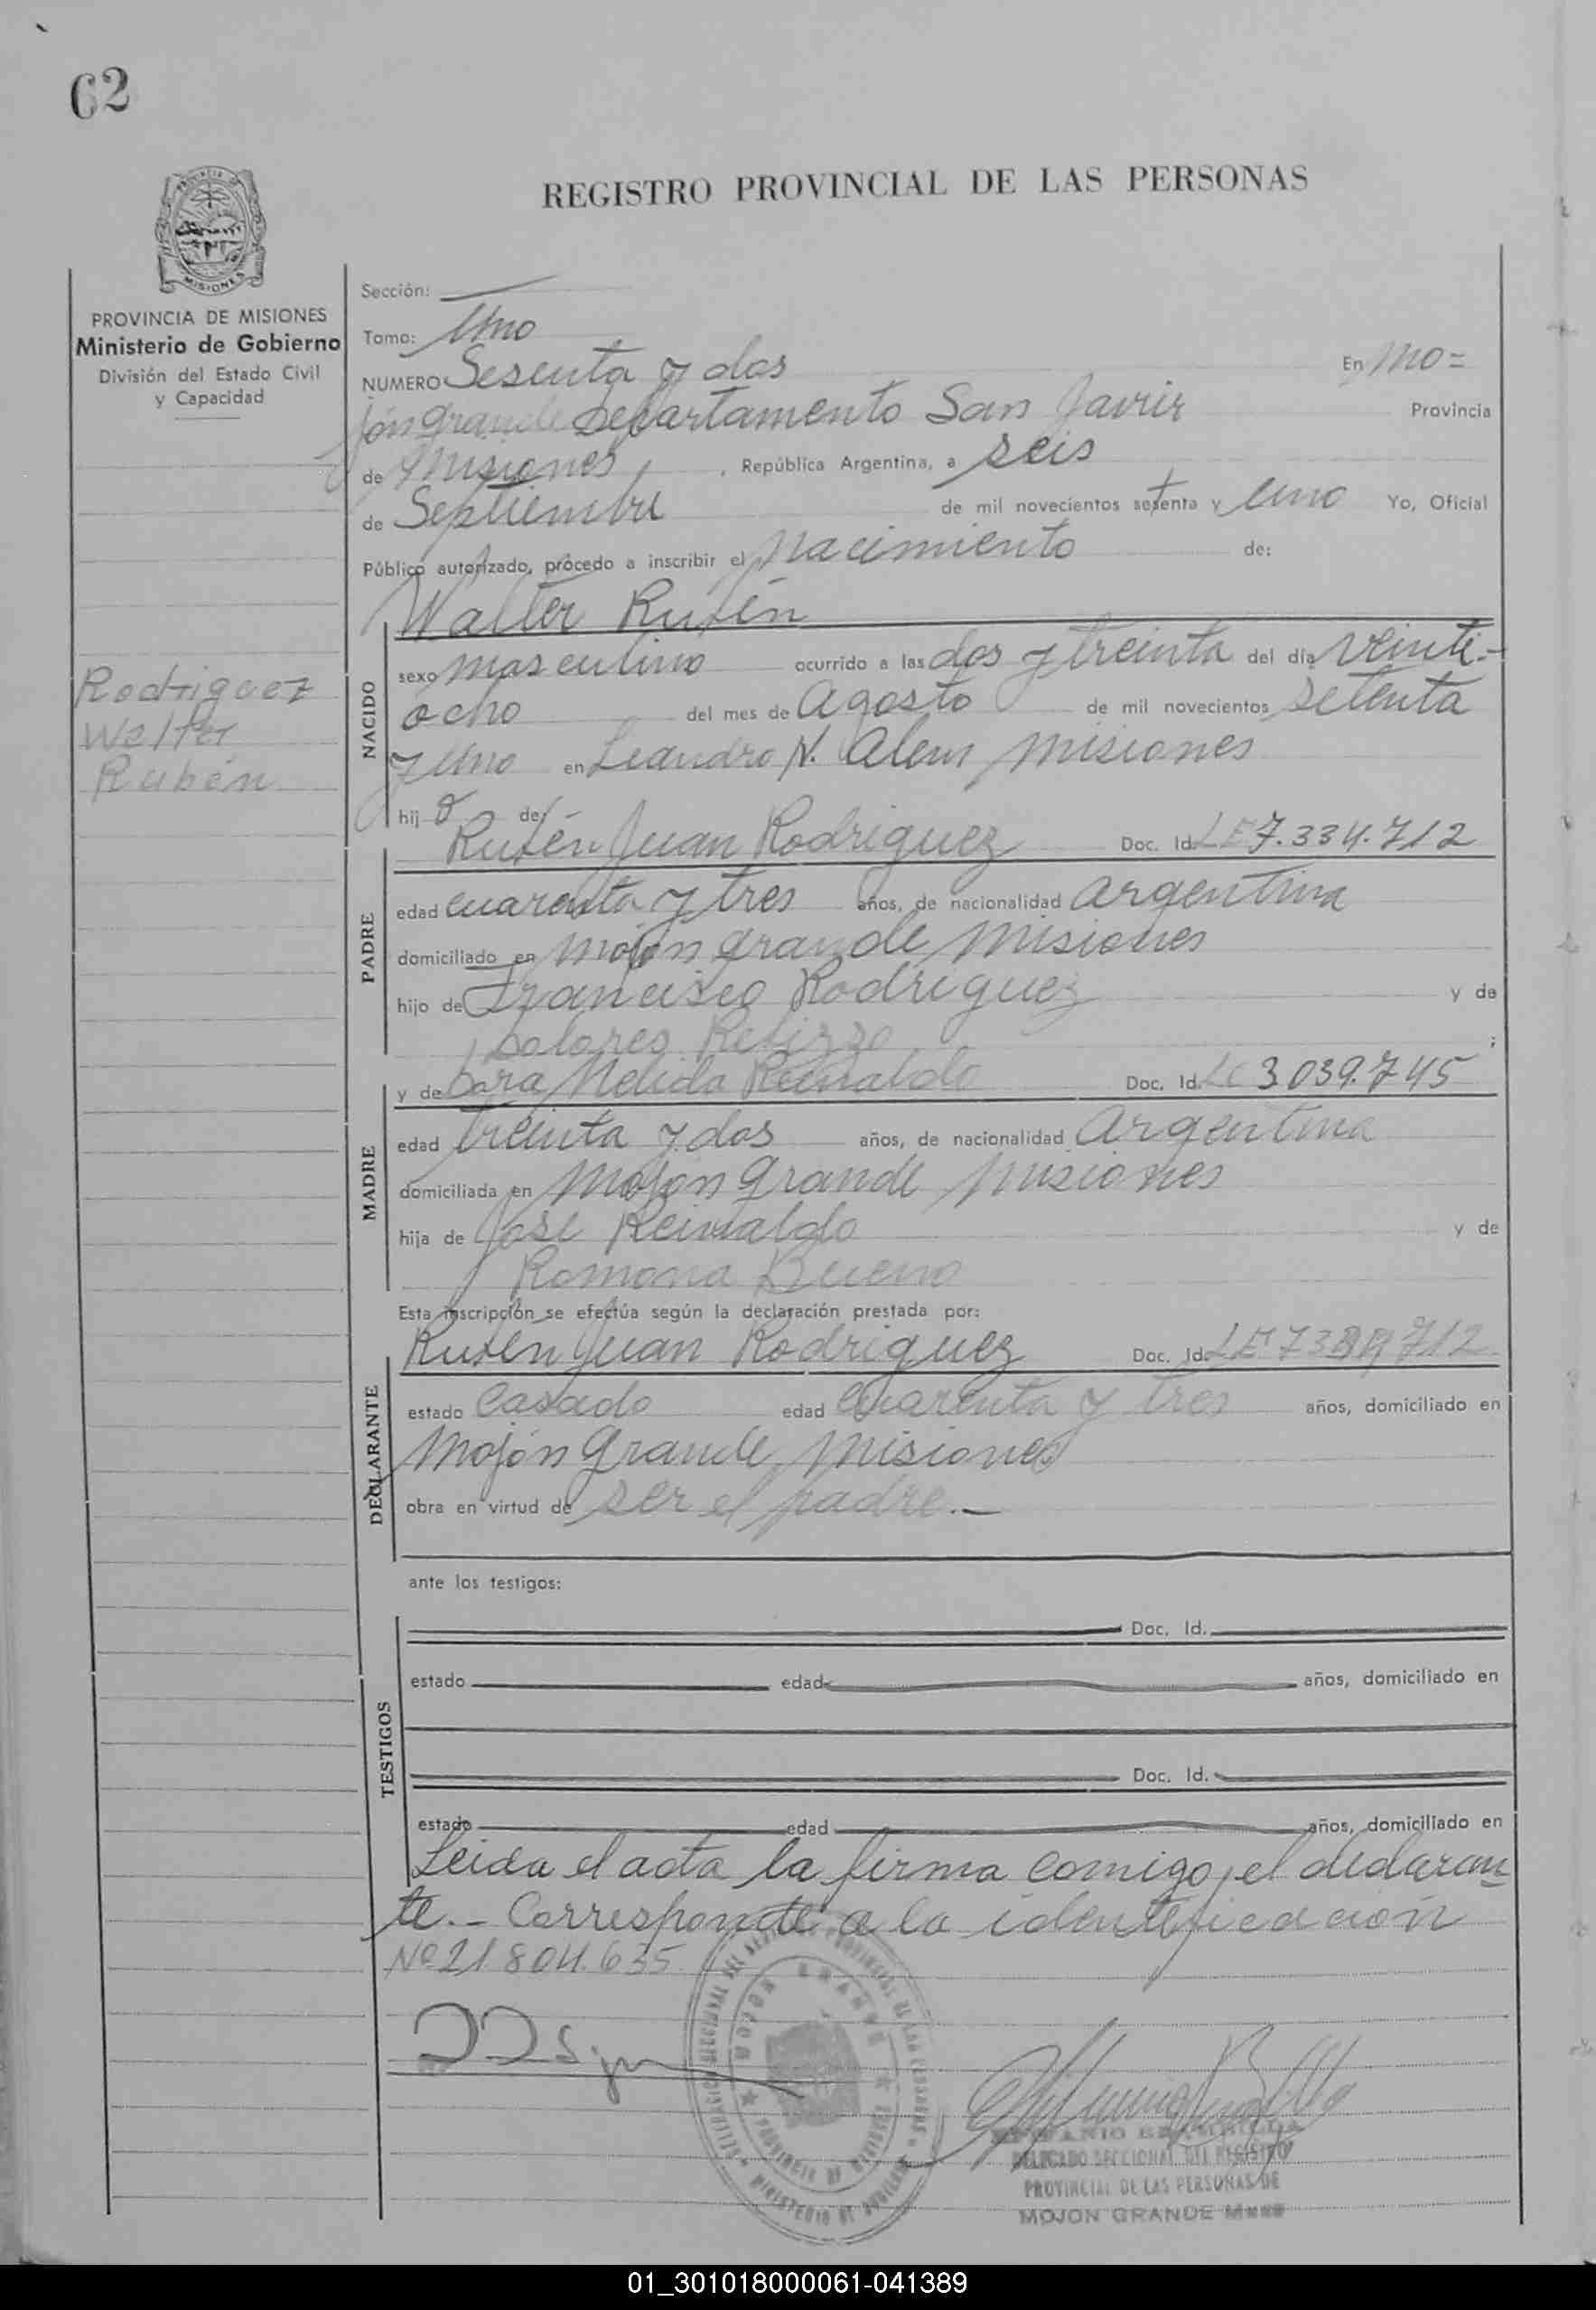 62
REGISTRO PROVINCIAL DE LAS PERSONAS
PROVINCIA DE MISIONES
Ministerio de Gobierno
División del Estado Civil
y Capacidad
Sección:
Tomo: Uno
NUMERO Sesenta y dos En Mo=
jón grande Departamento San Javier Provincia
de Misiones, República Argentina, a seis
de Septiembre de mil novecientos setenta y uno Yo, Oficial
Público autorizado, procedo a inscribir el nacimiento de:
Walter Rubén
Rodriguez
Walter
Rubén
NACIDO
sexo masculino ocurrido a las dos y treinta del día veinti-
ocho del mes de Agosto de mil novecientos setenta
y uno en Leandro N. Alem Misiones
hij o de
Rubén Juan Rodriguez Doc. Id. LE 7.334.712
PADRE
edad cuarenta y tres años, de nacionalidad argentina
domiciliado en Mojón grande Misiones
hijo de Francisco Rodriguez y de
Dolores ;
y de Nelida Doc. Id. LC 3.039.745
MADRE
edad treinta y dos años, de nacionalidad argentina
domiciliada en Mojon grande Misiones
hija de José Reinaldo y de
Romona Bueno
Esta inscripción se efectúa según la declaración prestada por:
Rubén Juan Rodriguez Doc. Id. LE 7334712
DECLARANTE
estado casado edad cuarenta y tres años, domiciliado en
Mojón grande, Misiones
obra en virtud de ser el padre.-
ante los testigos:
TESTIGOS
Doc. Id.
estado edad años, domiciliado en
Doc. Id.
estado edad años, domiciliado en
Leida el acta la firma comigo, el declaran
te.- Corresponde a la identificación
Nº 21.804.635
MOJON GRANDE
PROVINCIA DE MISIONES
MINISTERIO DE GOBIERNO
DELEGADO SECCIONAL DEL REGISTRO
PROVINCIAL DE LAS PERSONAS DE
MOJON GRANDE
01_301018000061-041389